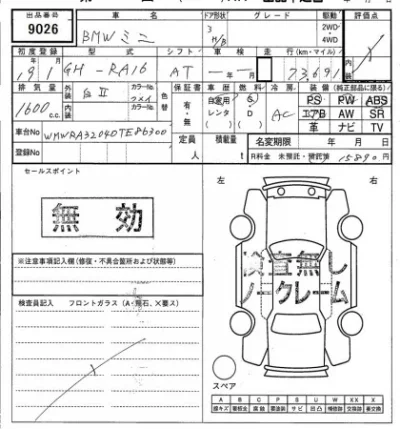 出品番号 車 名 ドア形状 グレード 駆動 評価点
9026 BMW ミニ 3 H/B 2WD・4WD
初度登録 型 式 シフト 車 検 走 行(km・マイル) 装 備(純正部品に限る)
19年1月 GH-RA16 AT 年 月 73,691
PS PW ABS
エアB AW SR
革 ナビ TV
排 気 量 外装 カラーNo 色替 保証書 車 歴 燃 料 冷 房
1600 c.c. 内装 カラーNo 有・無 自家用 レンタ G D AC
車台No WMWRA32040TE86300 定員 人 積載量 t 名変期限 年 月 日
登録No R料金 未預託・預託済 15890円
セールスポイント
無 効
左 右
※注意事項記入欄(修復・不具合箇所および状態等)
検査無し
ノークレーム
検査員記入 フロントガラス(A・飛石、×要ス)
スペア
A B C D S U W XX X